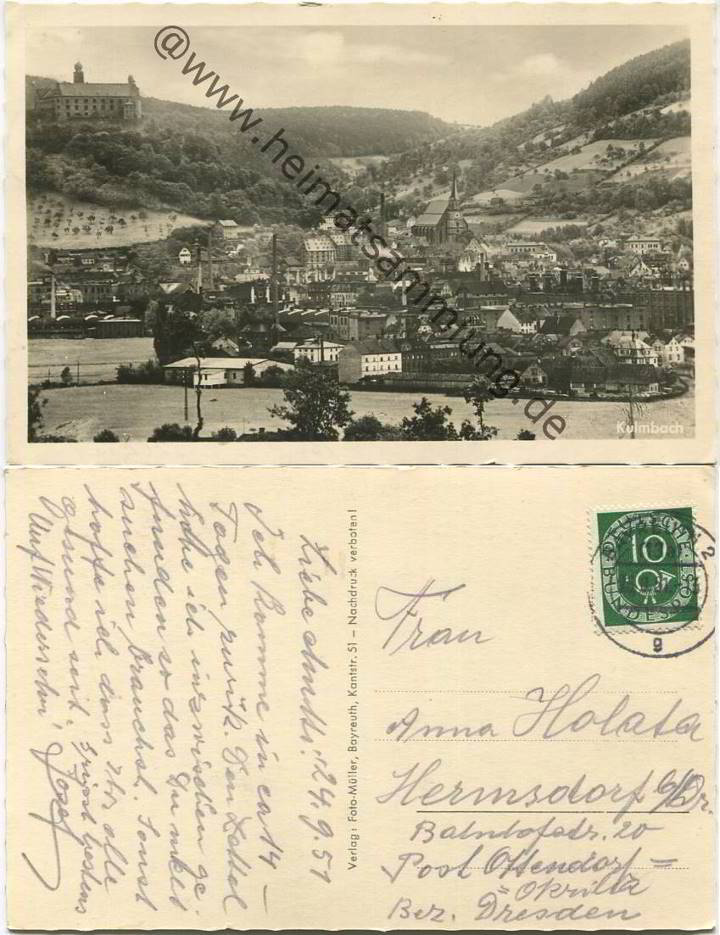 @www.heimatsammlung.de
Kulmbach
Liebe Anna! 24.9.51
Ich komme in ca 14
Tagen zurük. Den Zettel
habe ich inzwischen ge-
funden so das Du nicht
suchen brauchst. Sonst
hoffe ich, dass Ihr alle
gesund seit. Grüße bestens
Auf Wiedersehn! Josef
Verlag: Foto-Müller, Bayreuth, Kantstr. 51 – Nachdruck verboten!
DEUTSCHE
BUNDESPOST
10
2
g
Frau
Anna Holata
Hermsdorf b/Dr.
Bahnhofstr. 20
Post Ottendorf-
Okrilla
Bez. Dresden